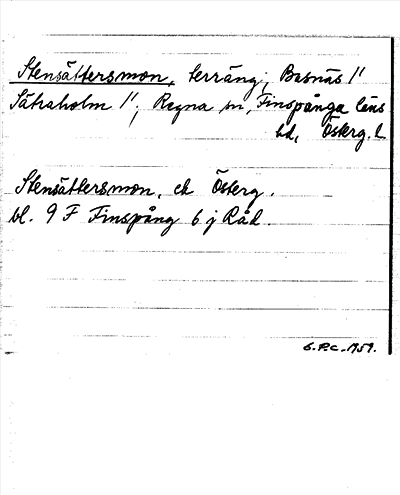 Stensättersmon, terräng; Basnäs 1/1
Sätraholm 1/1; Regna sn, Finspånga läns
hd, Österg. L
Stensättersmon, ek Österg.
bl. 9 F Finspång 6 j Råd.
G.P.C. 1959.